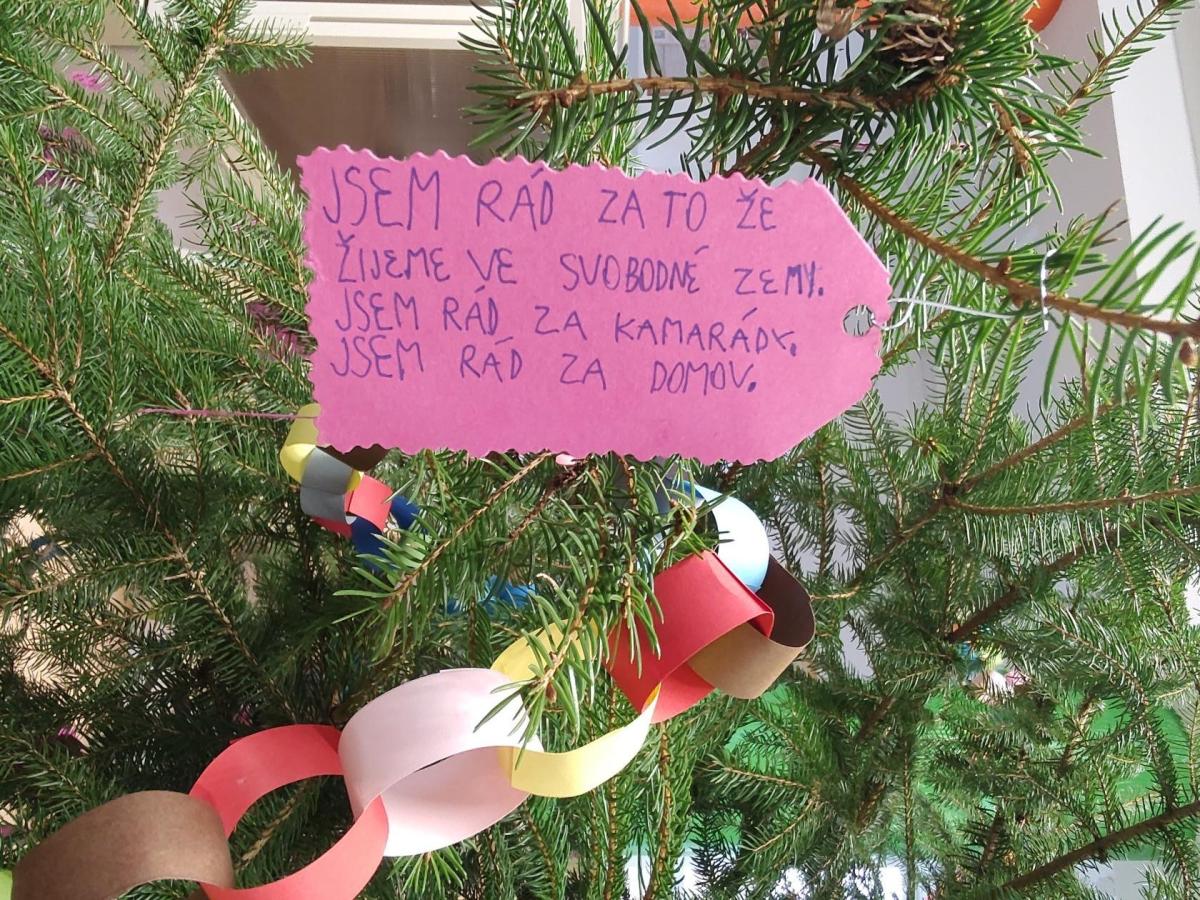 JSEM RÁD ZA TO ŽE
ŽIJEME VE SVOBODNÉ ZEMY.
JSEM RÁD ZA KAMARÁDY.
JSEM RÁD ZA DOMOV.